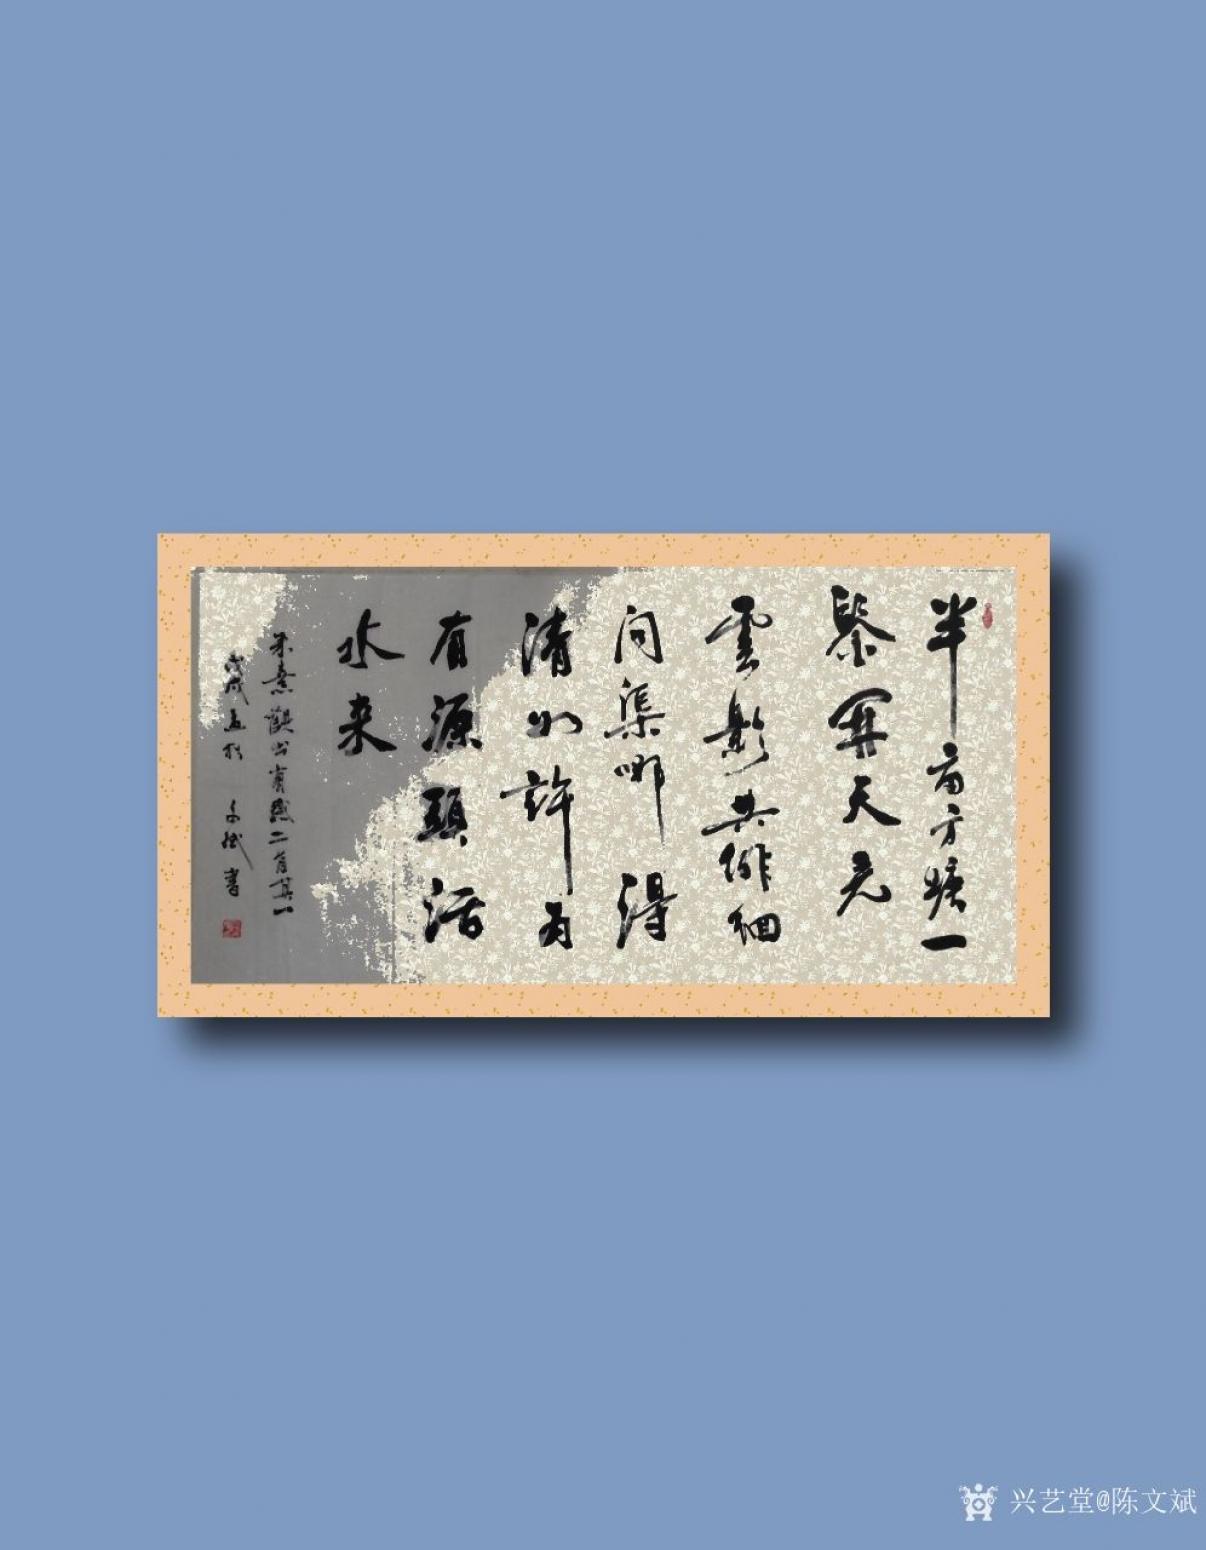 半亩方塘一
鋻開天光
雲影共徘徊
问渠哪得
清如許为
有源頭活
水来
朱熹觀书有感二首其一
戊戌孟秋 文斌書
兴艺堂@陈文斌